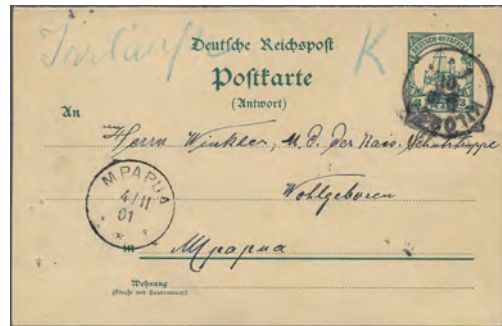 Deutsche Reichspost
K
Postkarte
(Antwort)
DEUTSCH-OSTAFRIKA
3 3
KILOSSA
An
Herrn Winkler, U. O. der Kais. Schutztruppe
Wohlgeboren
MPAPUA
4/11
01
in Mpapua
Wohnung
(Straße und Hausnummer)